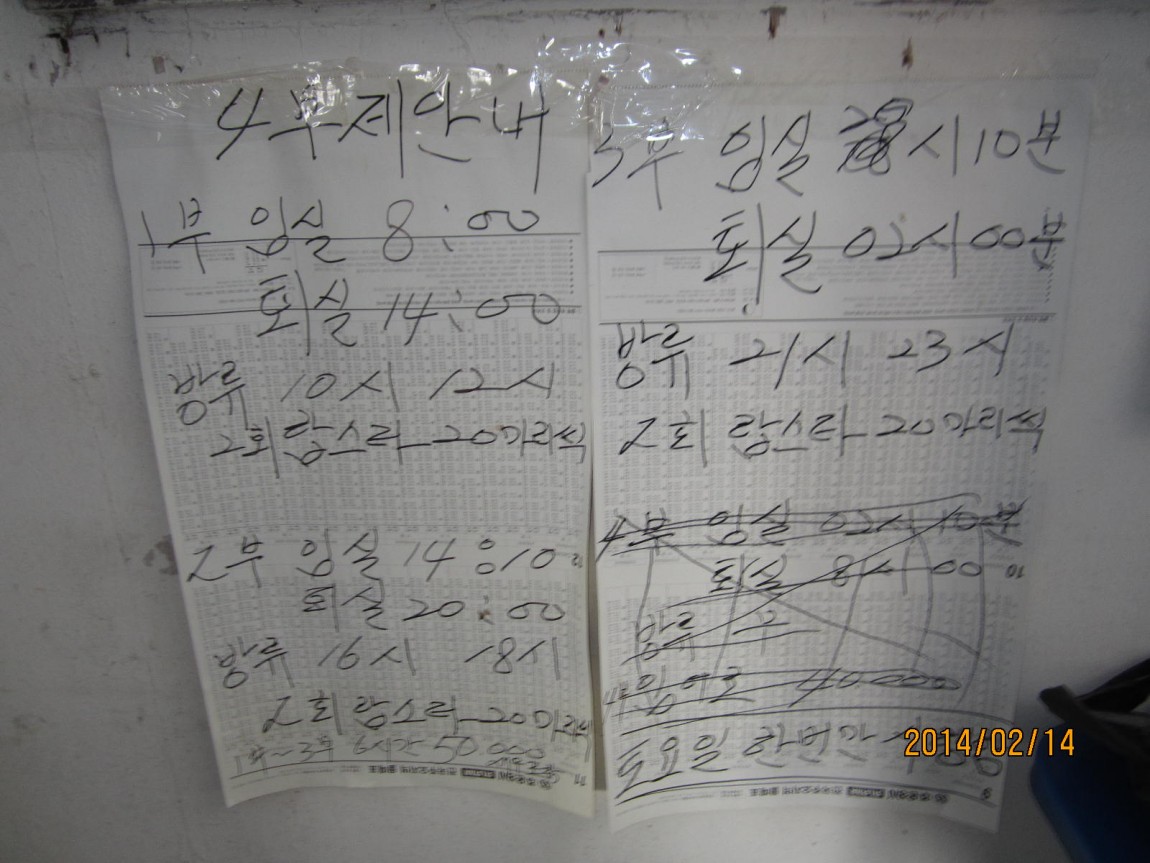 4부제안내
1부 입실 8:00
퇴실 14:00
방류 10시 12시
2회 람스타 20마리씩
2부 입실 14:10
퇴실 20:00
방류 16시 18시
2회 람스타 20마리씩
1부~3부 6시간 50,000
3부 입실 시10분
퇴실 02시00분
방류 21시 23시
2회 람스타 20마리씩
4부 입실 02시10분
퇴실 8시00
방류 무
입어료 40,000
토요일 한번만
2014/02/14